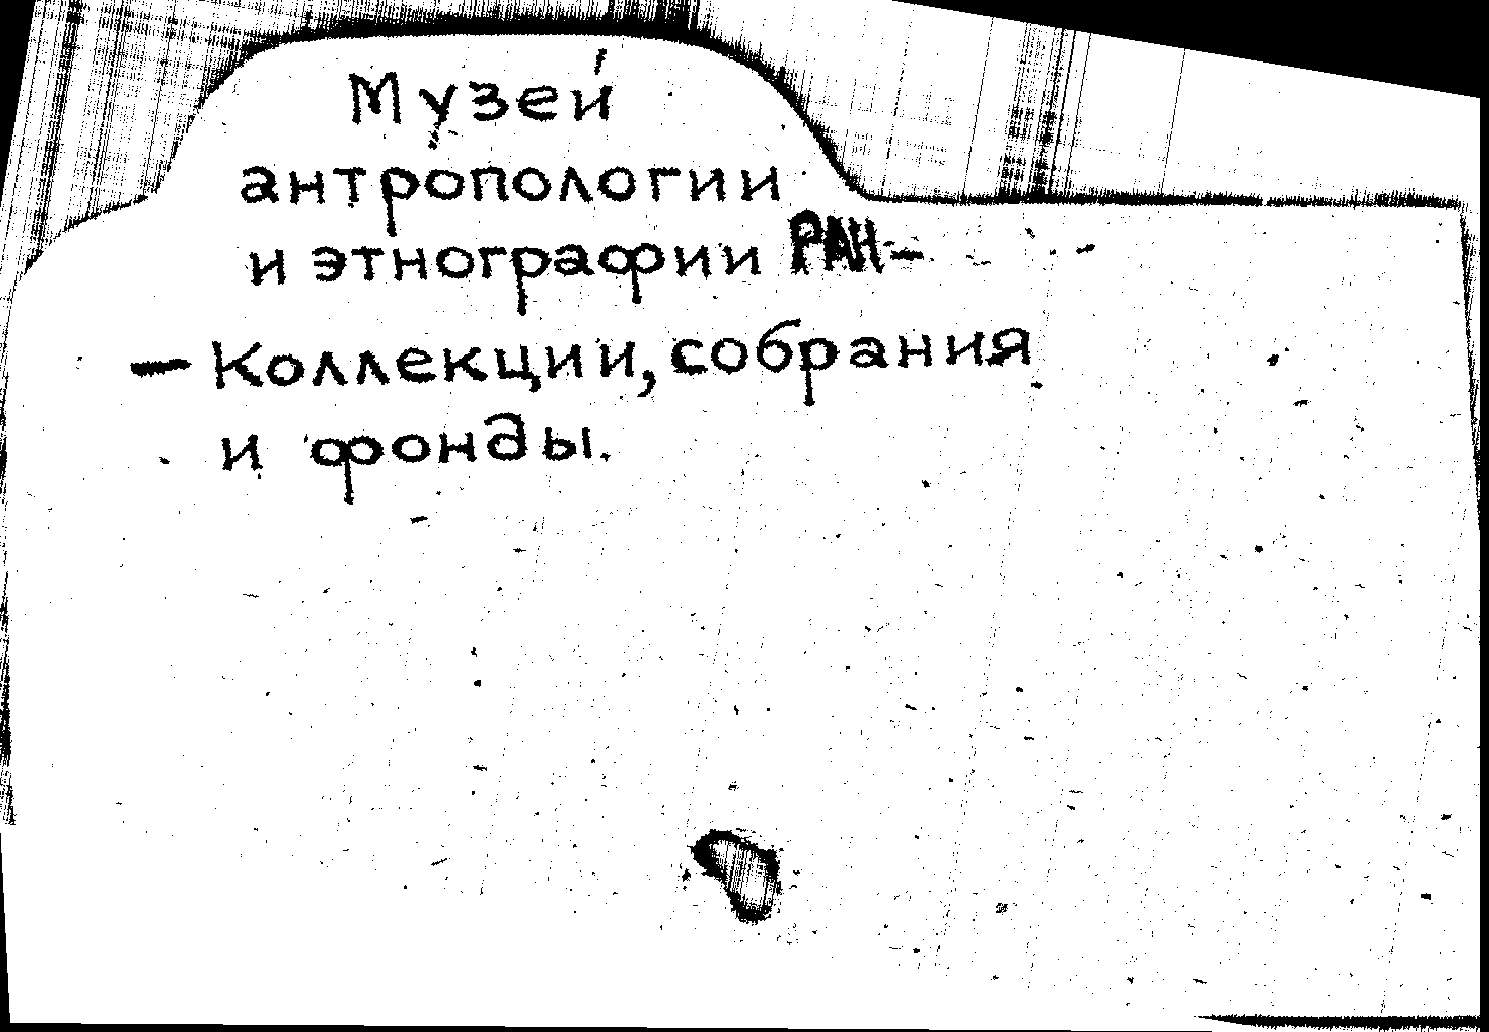 Музей
антропологии
и этнографии РАН –
– Коллекции, собрания
и фонды.